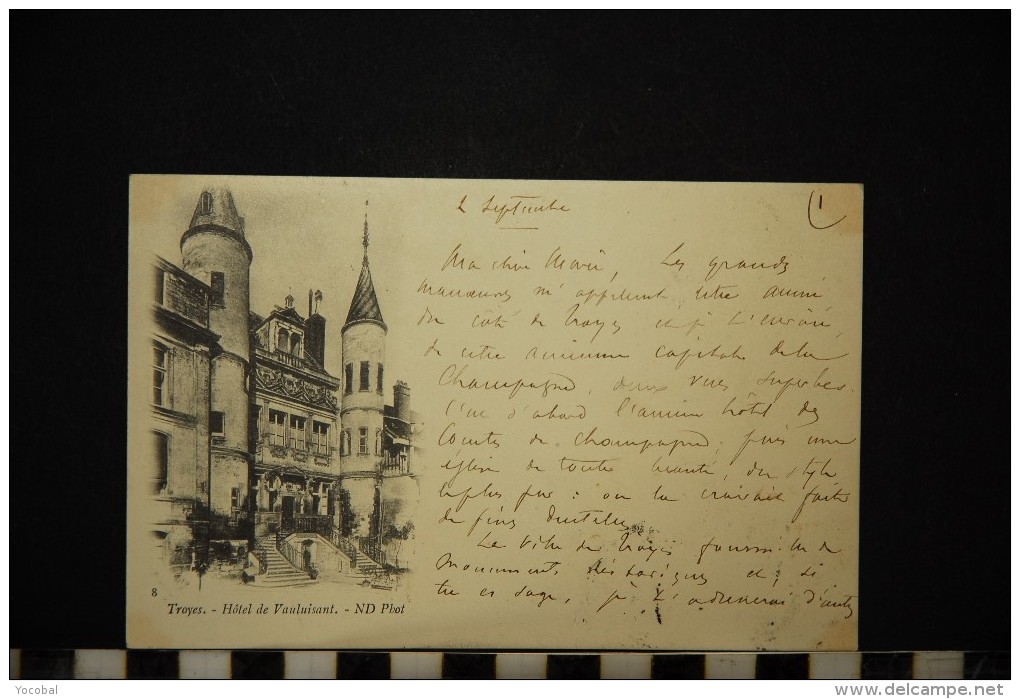 2 Septembre
1
Ma chère Marie, Les grandes
manœuvres m'appellent cette année
du côté de Troyes et je t'envoie,
de cette ancienne capitale de la
Champagne, deux vues superbes.
C'est d'abord l'ancien hôtel des
Comtes de Champagne, puis une
église de toute beauté, du style
le plus pur : on la croirait faite
de fines dentelles
La Ville de Troyes fourmille de
monuments historiques et, si
tu es sage, je t'adresserai d'autres
8
Troyes. - Hôtel de Vauluisant. - ND Phot
Yocobal
www.delcampe.net